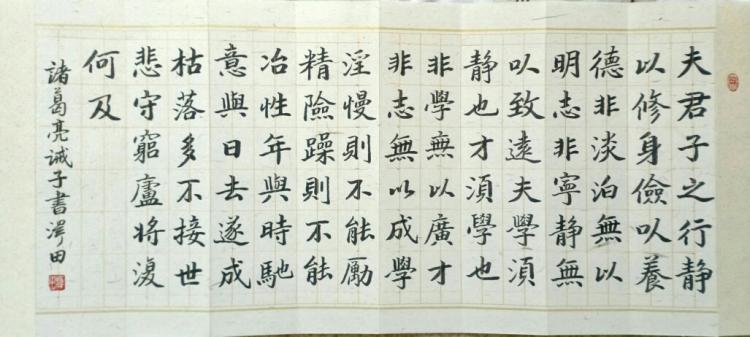 夫君子之行静
以修身儉以養
德非淡泊無以
明志非寧静無
以致遠夫學須
静也才須學也
非學無以廣才
非志無以成學
淫慢則不能勵
精險躁則不能
冶性年與時馳
意與日去遂成
枯落多不接世
悲守窮廬將復
何及
諸葛亮誡子書澤田